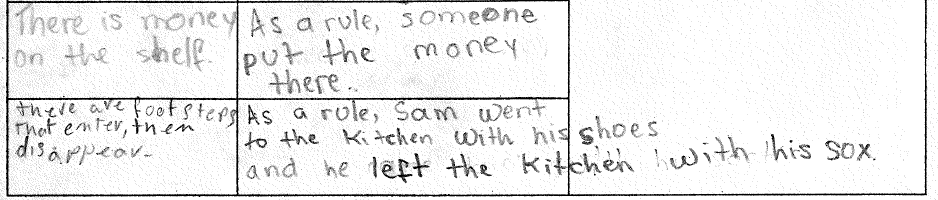 There is money
on the shelf.
As a rule, someone
put the money
there.
there are footsteps
that enter, then
disappear.
As a rule, Sam went
to the kitchen with his shoes
and he left the kitchen with his sox.